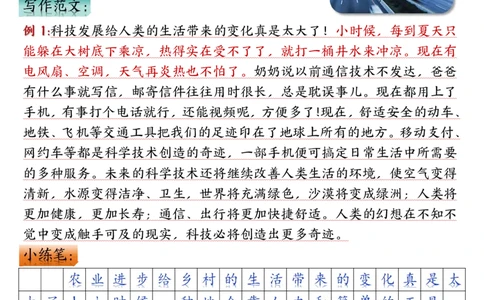 写作范文：
例 1:科技发展给人类的生活带来的变化真是太大了！小时候，每到夏天只
能躲在大树底下乘凉，热得实在受不了了，就打一桶井水来冲凉。现在有
电风扇、空调，天气再炎热也不怕了。奶奶说以前通信技术不发达，爸爸
有什么事就写信，邮寄信件往往用时很长，总是耽误事儿。现在都用上了
手机，有事打个电话就行，还能视频呢，方便多了!现在，舒适安全的动车、
地铁、飞机等交通工具把我们的足迹印在了地球上所有的地方。移动支付、
网约车等都是科学技术创造的奇迹，一部手机便可搞定日常生活中所需要
的多种服务。未来的科学技术还将继续改善人类生活的环境，使空气变得
清新，水源变得洁净、卫生，世界将充满绿色，沙漠将变成绿洲；人类将
更加健康，更加长寿；通信、出行将更加快捷舒适。人类的幻想在不知不
觉中变成触手可及的现实，科技必将创造出更多奇迹。
小练笔：
农业进步给乡村的生活带来的变化真是太